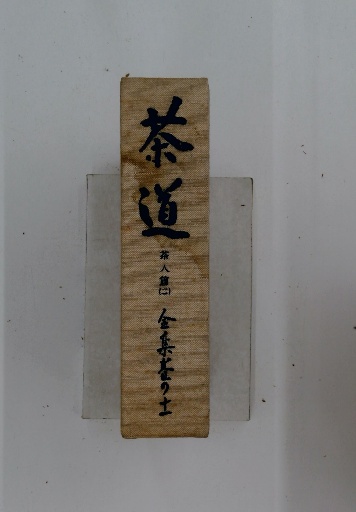 茶道
茶人篇(二)
全集巻の十一